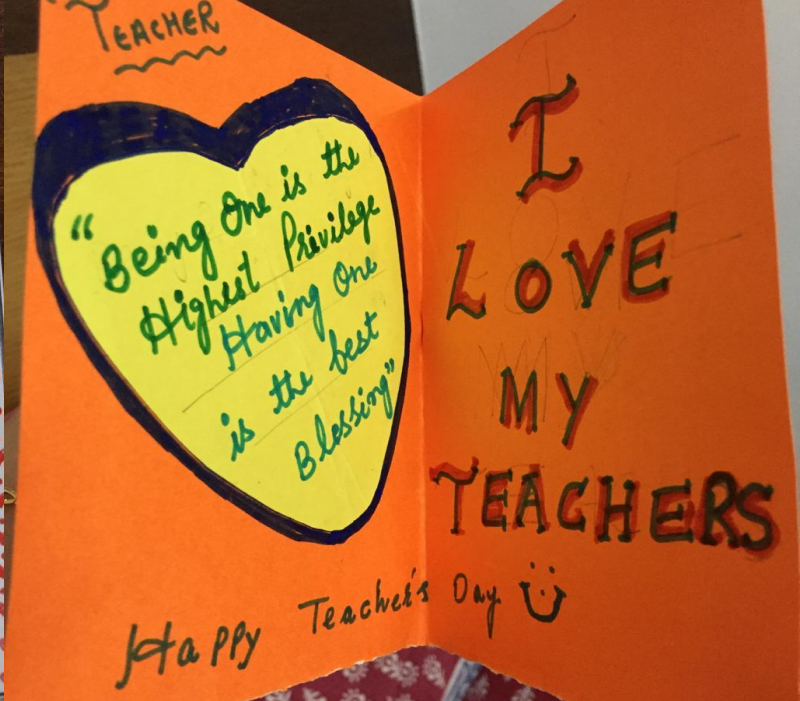 TEACHER
"Being One is the
Highest Privilege
Having One
is the best
Blessing"
I
LOVE
MY
TEACHERS
Happy Teacher's Day